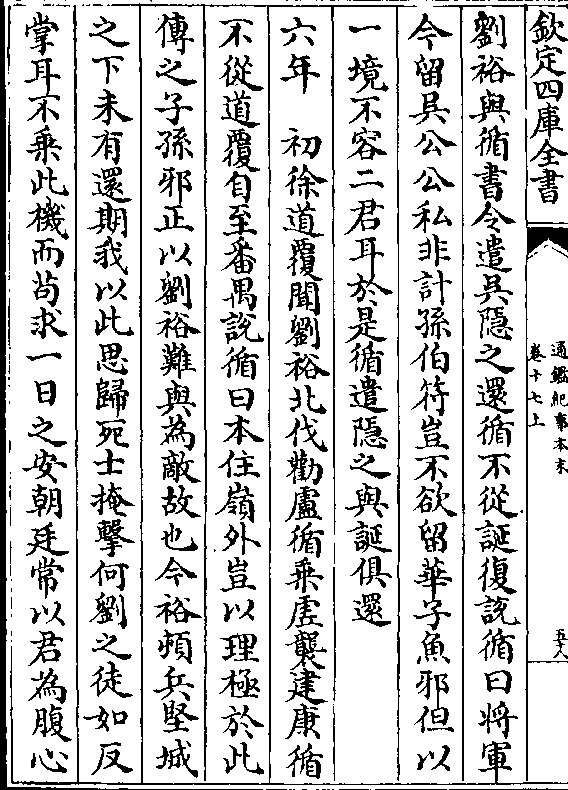 欽定四庫全書
通鑑紀事本末
卷十七上
五十八
劉裕與循書令遣吳隱之還循不從誕復說循曰將軍
今留吳公公私非計孫伯符豈不欲留華子魚邪但以
一境不容二君耳於是循遣隱之與誕俱還
六年　初徐道覆聞劉裕北伐勸盧循乘虛襲建康循
不從道覆自至番禺說循曰本住嶺外豈以理極於此
傳之子孫邪正以劉裕難與為敵故也今裕頓兵堅城
之下未有還期我以此思歸死士掩擊何劉之徒如反
掌耳不乘此機而苟求一日之安朝廷常以君為腹心